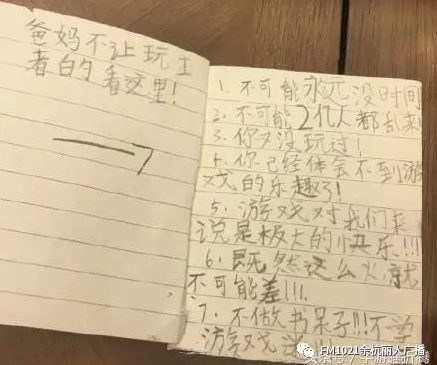 爸妈不让玩王
者的看这里!
1. 不可能永远没时间
2. 不可能2亿人都乱来
3. 你又没玩过!
4. 你已经体会不到游
戏的乐趣了!
5. 游戏对我们来
说是极大的快乐!!!
6. 既然这么火就
不可能差!!!
7. 不做书呆子!!!不学
游戏
FM1021余杭丽人广播